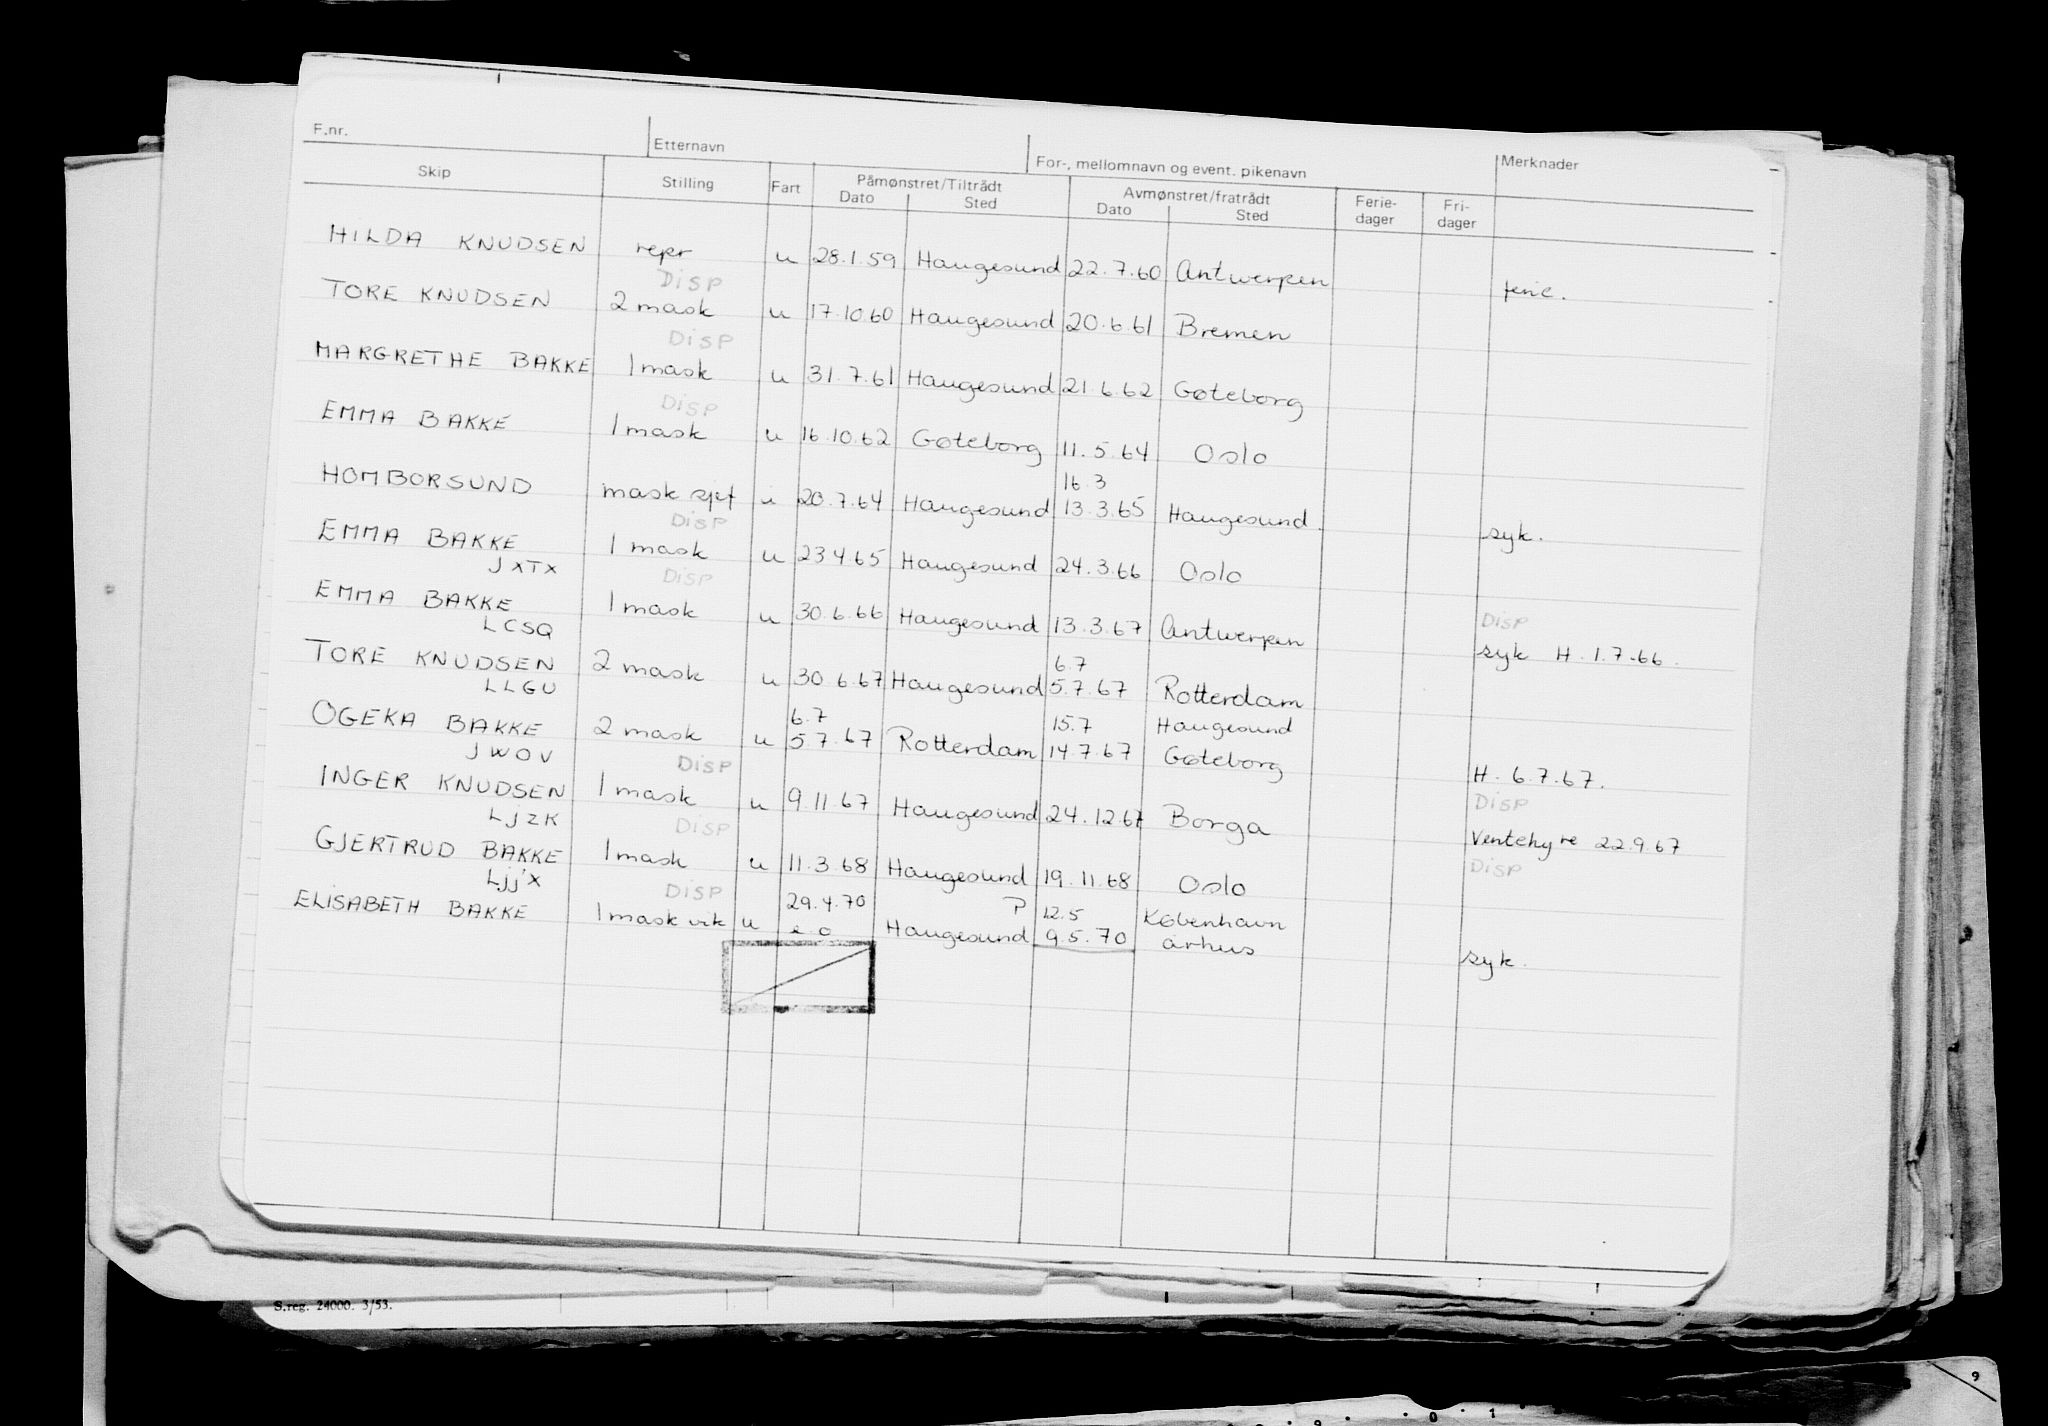 F.nr. Etternavn For-, mellomnavn og event. pikenavn Merknader
Skip Stilling Fart Påmønstret/Tiltrådt Avmønstret/fratrådt Ferie- Fri-
Dato Sted Dato Sted dager dager
HILDA KNUDSEN repr u 28.1.59 Haugesund 22.7.60 Antwerpen ferie.
DISP
TORE KNUDSEN 2 mask u 17.10.60 Haugesund 20.6.61 Bremen
DISP
MARGRETHE BAKKE 1 mask u 31.7.61 Haugesund 21.6.62 Gøteborg
DISP
EMMA BAKKE 1 mask u 16.10.62 Gøteborg 11.5.64 Oslo
16.3
HOMBORSUND mask sjef i 20.7.64 Haugesund 13.3.65 Haugesund. syk.
DISP
EMMA BAKKE 1 mask u 23 4 65 Haugesund 24.3.66 Oslo
JXTX DISP DISP
EMMA BAKKE 1 mask u 30.6.66 Haugesund 13.3.67 Antwerpen syk H. 1.7.66.
LCSQ 6.7
TORE KNUDSEN 2 mask u 30.6.67 Haugesund 5.7.67 Rotterdam
LLGU 6.7 15.7 Haugesund
OGEKA BAKKE 2 mask u 5.7.67 Rotterdam 14.7.67 Gøteborg H. 6.7.67.
JWOV DISP DISP
INGER KNUDSEN 1 mask u 9.11.67 Haugesund 24.12.67 Borga Ventehyre 22.9.67
LJZK DISP DISP
GJERTRUD BAKKE 1 mask u 11.3.68 Haugesund 19.11.68 Oslo
LJJX DISP 29.4.70 P 12.5 København
ELISABETH BAKKE 1 mask vik u e o Haugesund 9.5.70 århus syk.
S.reg. 24000. 3/53.
9